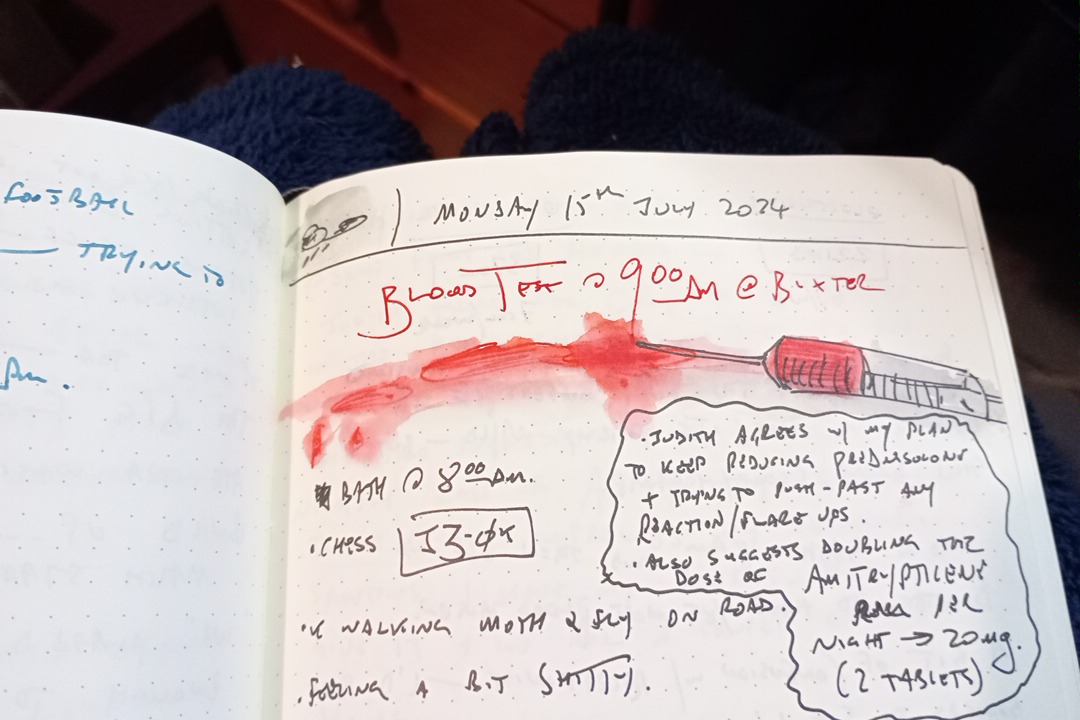 FOOTBALL
TRYING TO
Am.
MONDAY 15th JULY 2024
BLOOD TEST @ 9:00 AM @ BUXTED
BATH @ 8:00 AM.
• CHESS
WALKING MOTH & FLY ON ROAD.
• FEELING A BIT SHITTY.
• JUDITH AGREES w/ MY PLAN
TO KEEP REDUCING PREDNISOLONE
+ TRYING TO PUSH-PAST ANY
REACTION/FLARE UPS.
• ALSO SUGGESTS DOUBLING THE
DOSE OF AMITRYPTILENE
PER
NIGHT → 20mg.
(2 TABLETS)